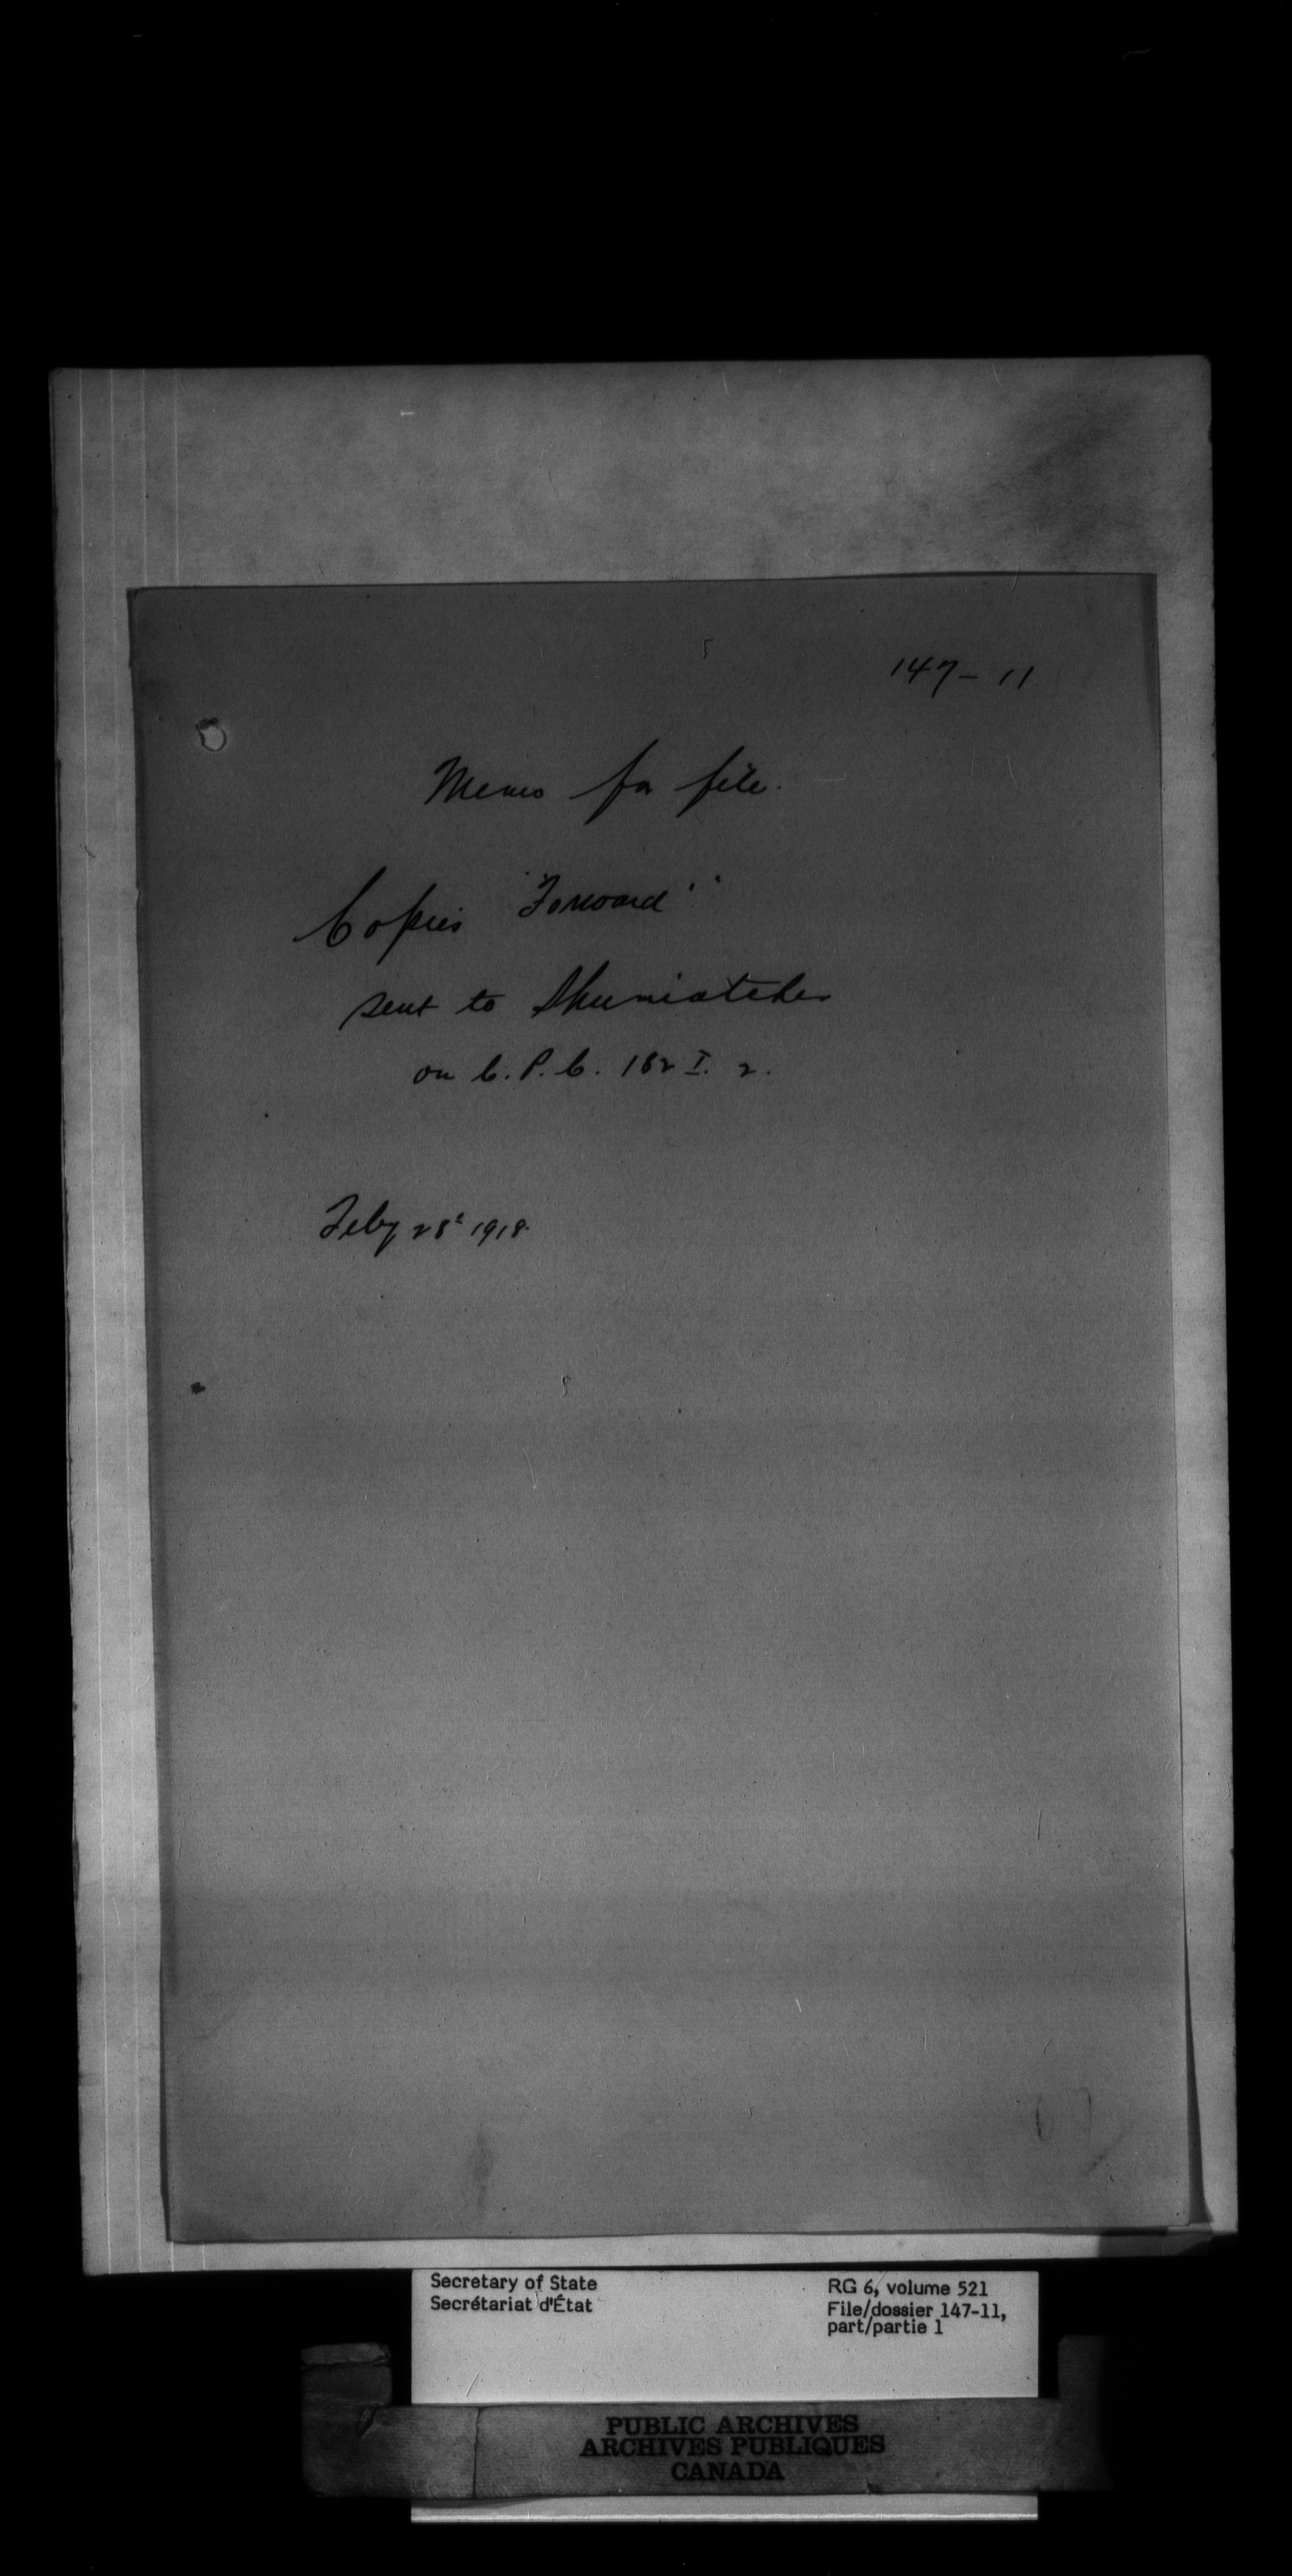 147-11
Memo for file.
Copies "Forward"
sent to Shumiatcher
on C.P.C. 182 I. 2.
Feby 28t 1918.
Secretary of State
Secrétariat d'État
RG 6, volume 521
File/dossier 147-11,
part/partie 1
PUBLIC ARCHIVES
ARCHIVES PUBLIQUES
CANADA